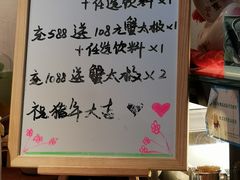 +任选饮料×1
充588送108元蟹太极×1
+任选饮料×1
充1088送蟹太极×2
祝猪年大吉